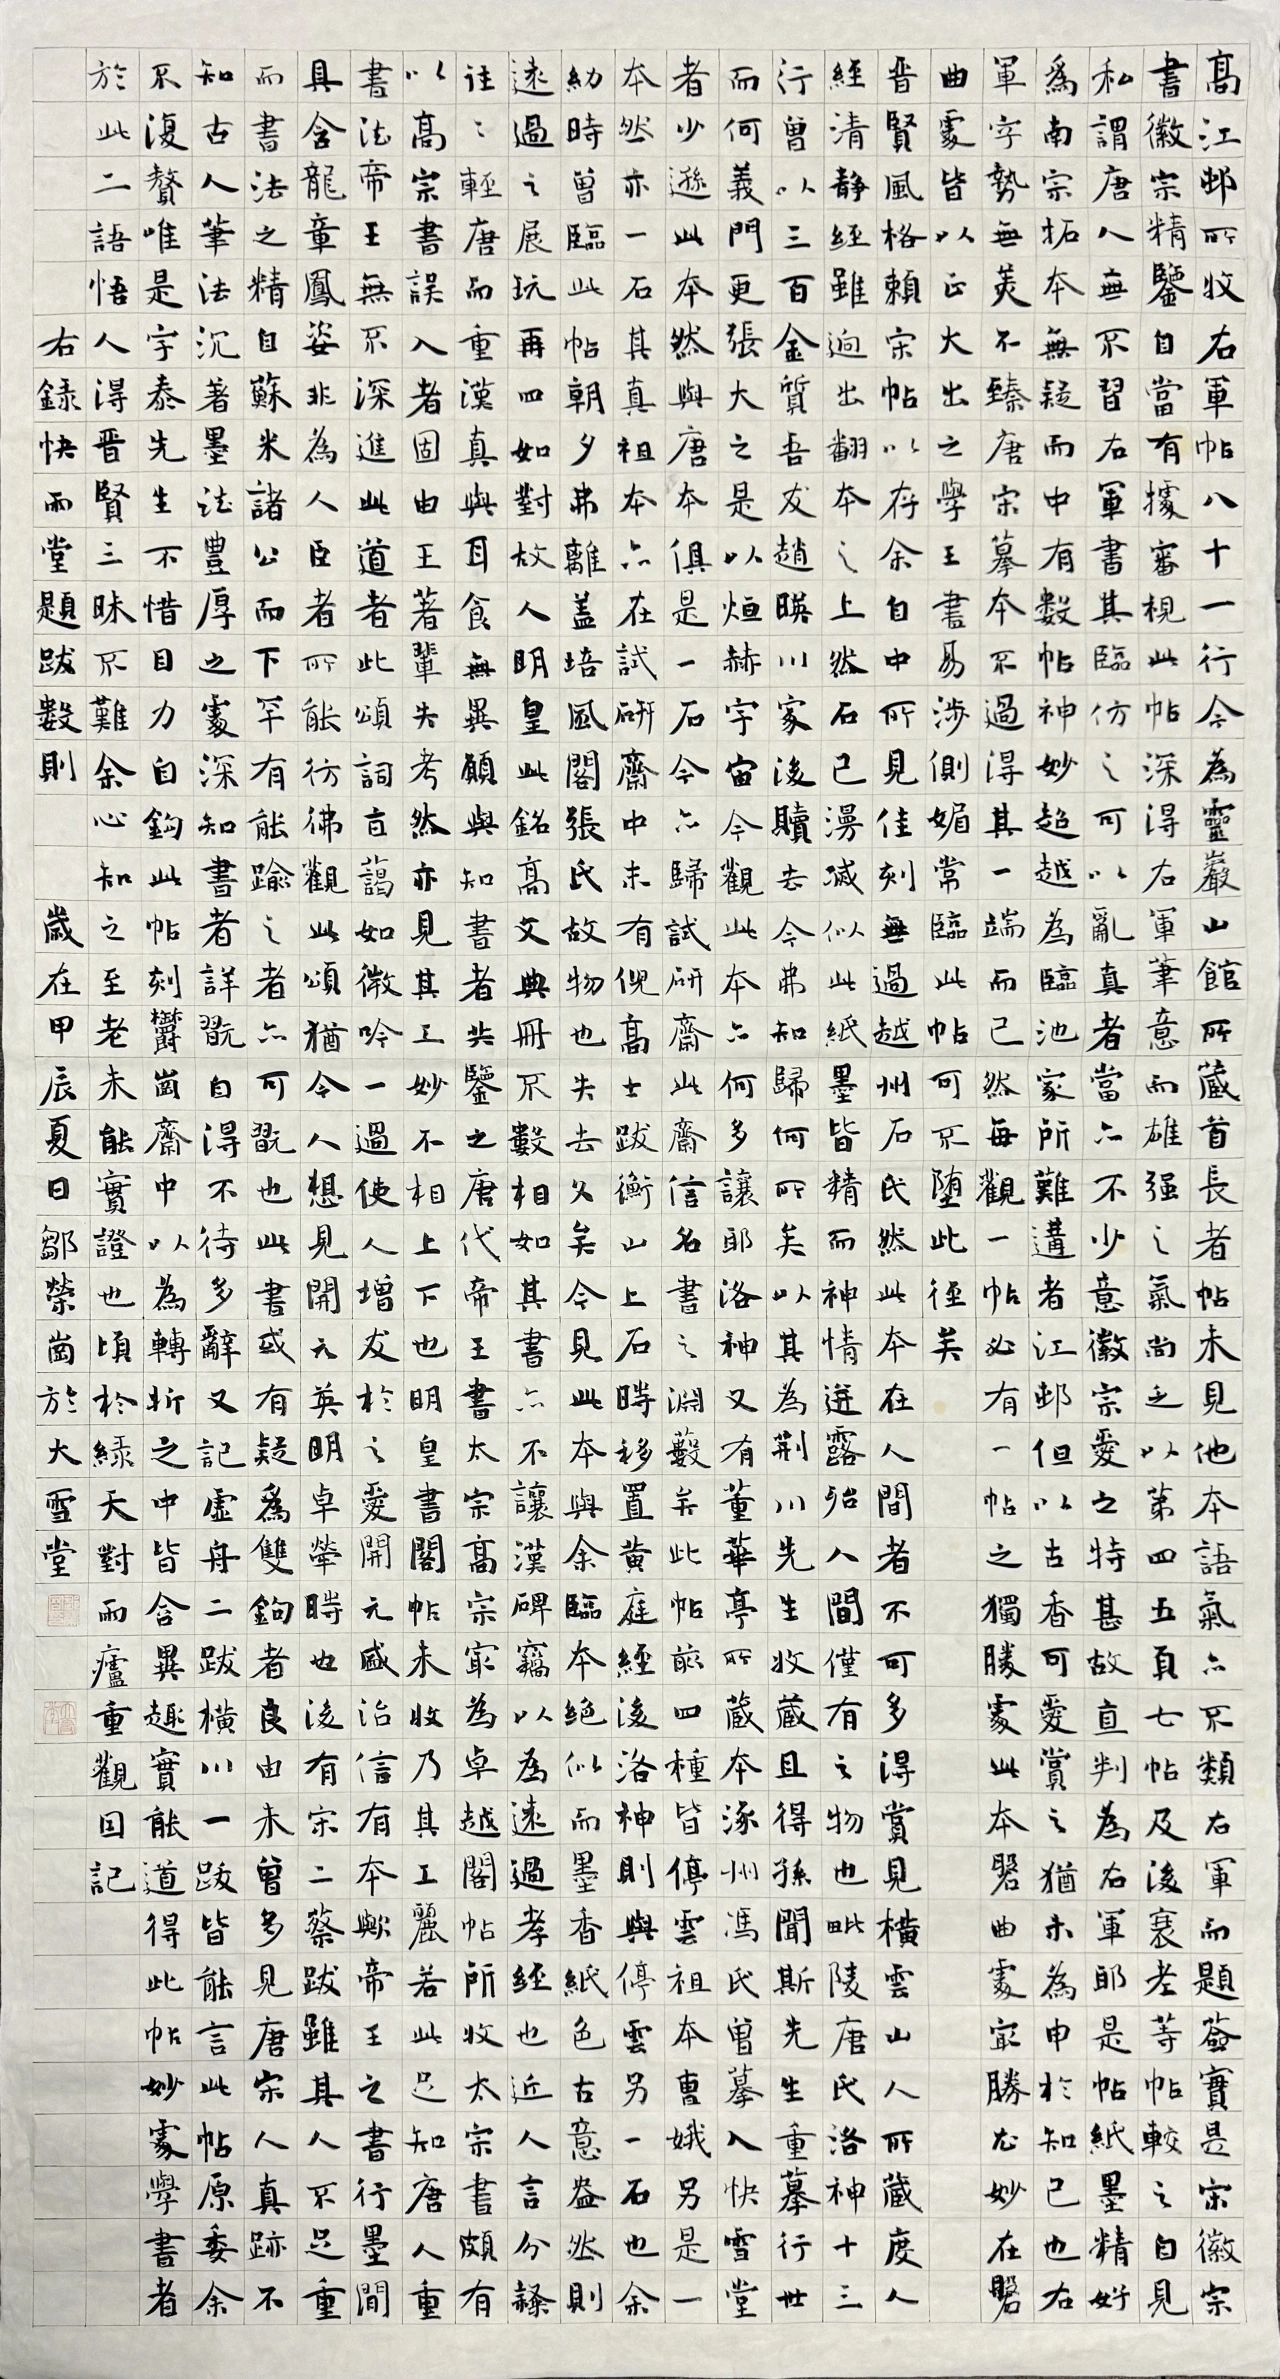 高江邨所收右軍帖八十一行今為靈巖山館所藏首長者帖未見他本語氣亦不類右軍而題簽實是宋徽宗
書徽宗精鑒自當有據審視此帖深得右軍筆意而雄强之氣尚乏以第四五頁七帖及後衰老等帖較之自見
私謂唐人無不習右軍書其臨仿之可以亂真者當亦不少意徽宗愛之特甚故直判為右軍耶是帖紙墨精好
為南宗拓本無疑而中有數帖神妙超越為臨池家所難遘者江邨但以古香可愛賞之猶未為申於知己也右
軍字勢無美不臻唐宗摹本不過得其一端而已然每觀一帖必有一帖之獨勝處此本磐曲處最勝尤妙在磐
曲處皆以正大出之學王書易涉側媚常臨此帖可不墮此徑矣
晋賢風格賴宋帖以存余自中所見佳刻無過越州石氏然此本在人間者不可多得賞見橫雲山人所藏度人
經清静經雖迥出翻本之上然石已漫滅似此紙墨皆精而神情迸露殆人間僅有之物也毗陵唐氏洛神十三
行曾以三百金質吾友趙暎川家後贖去今弗知歸何所矣以其為荆川先生收藏且得孫聞斯先生重摹行世
而何義門更張大之是以烜赫宇宙今觀此本亦何多讓耶洛神又有董華亭所藏本涿州馮氏曾摹入快雪堂
者少遜此本然與唐本俱是一石今亦歸試研齋此齋信名書之淵藪矣此帖前四種皆停雲祖本曹娥另是一
本然亦一石其真祖本亦在試研齋中未有倪高士跋衡山上石時移置黄庭經後洛神則與停雲另一石也余
幼時曾臨此帖朝夕弗離蓋培風閣張氏故物也失去久矣今見此本與余臨本絶似而墨香紙色古意盎然則
遠過之展玩再四如對故人明皇此銘高文典冊不數相如其書亦不讓漢碑竊以為遠過孝經也近人言分隸
往〻輕唐而重漢真與耳食無異願與知書者共鑒之唐代帝王書太宗高宗最為卓越閣帖所收太宗書頗有
以高宗書誤入者固由王著輩失考然亦見其工妙不相上下也明皇書閣帖未收乃其工麗若此足知唐人重
書法帝王無不深進此道者此頌詞旨藹如微吟一過使人增友於之愛開元盛治信有本歟帝王之書行墨間
具含龍章鳳姿非為人臣者所能彷彿觀此頌猶令人想見開元英明卓犖時也後有宋二蔡跋雖其人不足重
而書法之精自蘇米諸公而下罕有能踰之者亦可翫也此書或有疑為雙鉤者良由未曾多見唐宋人真跡不
知古人筆法沉著墨法豊厚之處深知書者詳翫自得不待多辭又記虛舟二跋橫川一跋皆能言此帖原委余
不復贅唯是宇泰先生不惜目力自鈎此帖刻欝崗齋中以為轉折之中皆含異趣實能道得此帖妙處學書者
於此二語悟人得晋賢三昧不難余心知之至老未能實證也頃於緑天對雨廬重觀因記
右録快雨堂題跋數則 歲在甲辰夏日鄒榮崗於大雪堂